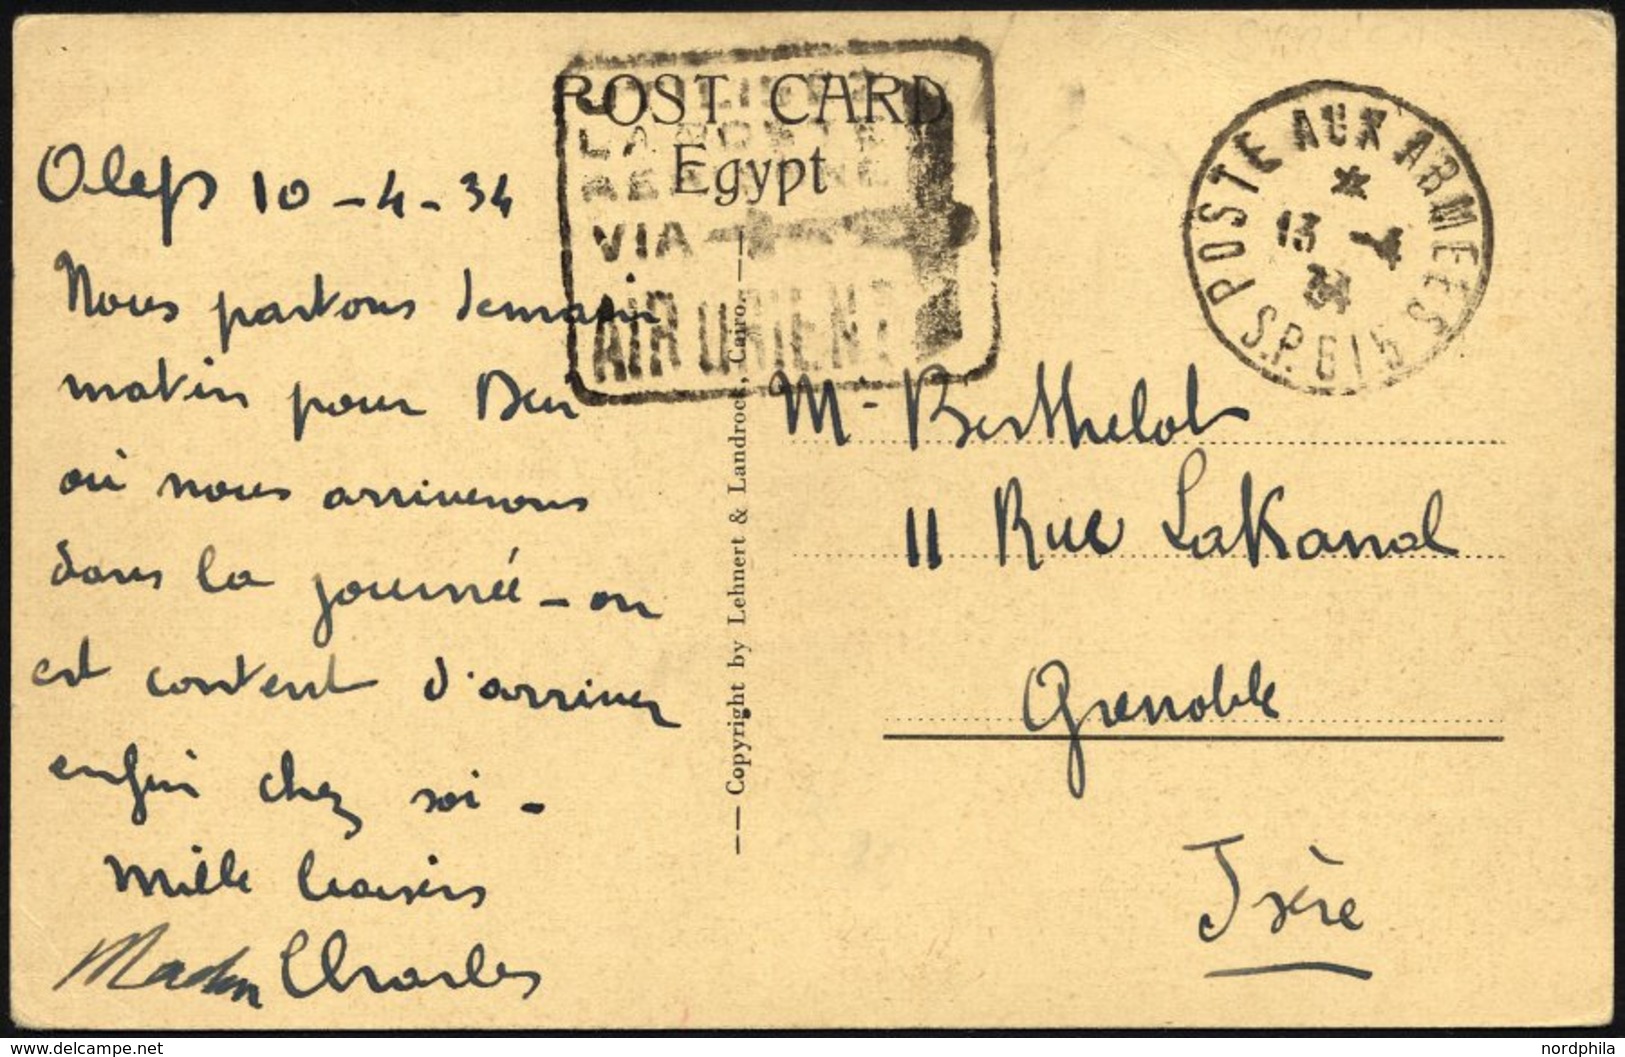 POST CARD
Egypt
LA POSTE
AERIENNE
VIA
AIR ORIENT
POSTE AUX ARMEES
*
13 -4
34
S.P. 615
Alep 10-4-34
Nous partons demain
matin pour Deir
où nous arriverons
dans la journée - on
est content d'arriver
enfin chez soi -
Mille baisers
Charles
—— Copyright by Lehnert & Landrock, Cairo. ——
Mr Berthelot
11 Rue Lakanal
Grenoble
Isère
delcampe.net
nordphila